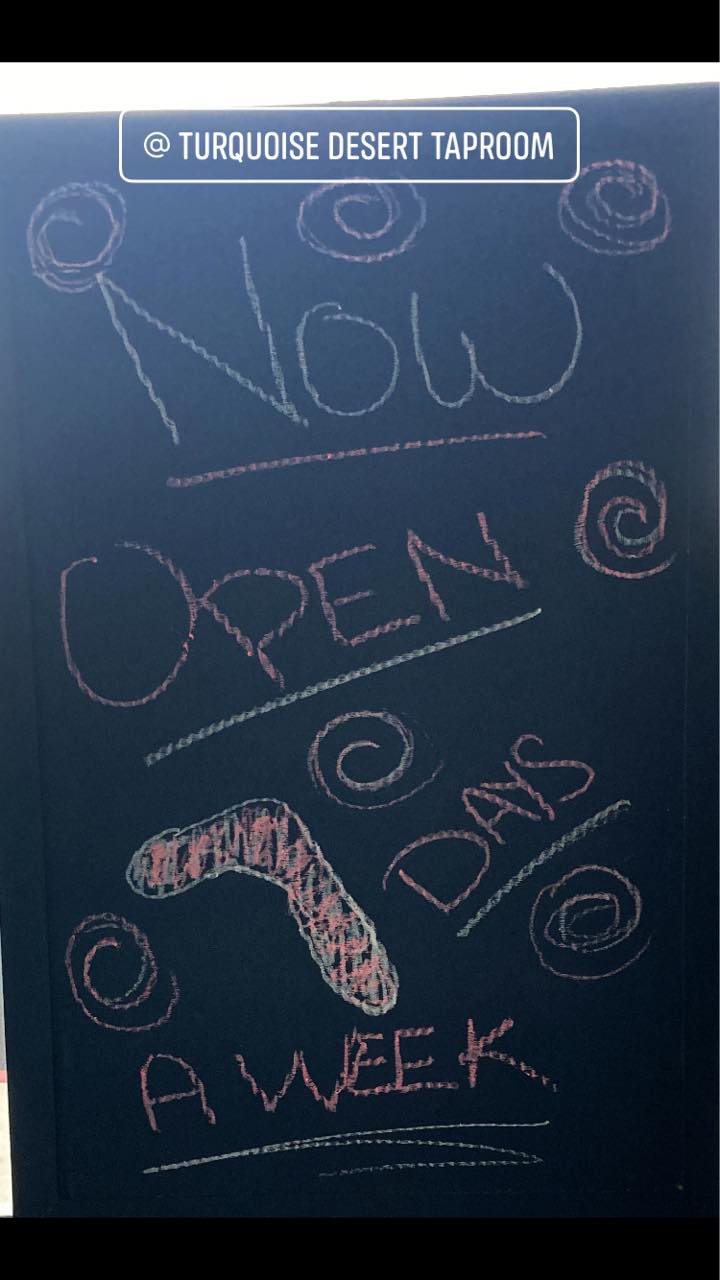 @ TURQUOISE DESERT TAPROOM
NOW
OPEN
7 DAYS
A WEEK